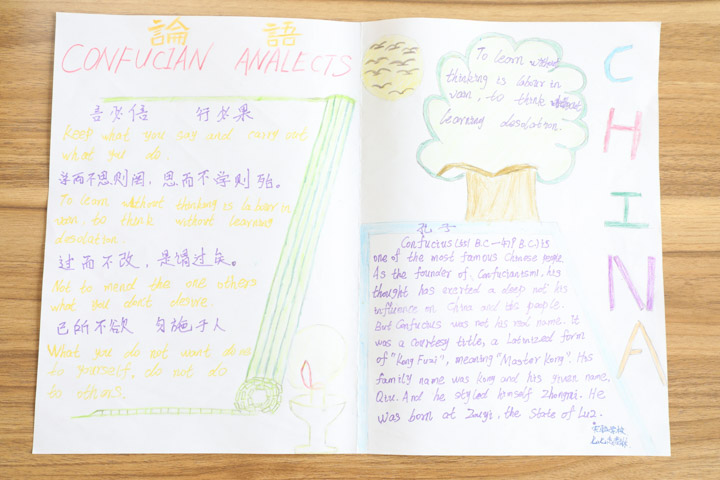 論 語
CONFUCIAN ANALECTS
言必信 行必果
Keep what you say and carry out
what you do.
学而不思则罔,思而不学则殆。
To learn without thinking is labour in
vain, to think without learning
desolation.
过而不改,是谓过矣。
Not to mend the one others
what you don't desire.
己所不欲 勿施于人
What you do not want done
to yourself, do not do
to others.
To learn without
thinking is labour in
vain, to think without
learning desolation.
CHINA
孔子
Confucius (551 B.C—479 B.C.) is
one of the most famous Chinese people.
As the founder of Confucianism, his
thought has exerted a deep not his
influence on China and its people.
But Confucius was not his real name. It
was a courtesy title, a Latinized form
of "Kong Fuzi", meaning "Master Kong". His
family name was Kong and his given name,
Qiu. And he styled himself Zhongni. He
was born at the State of